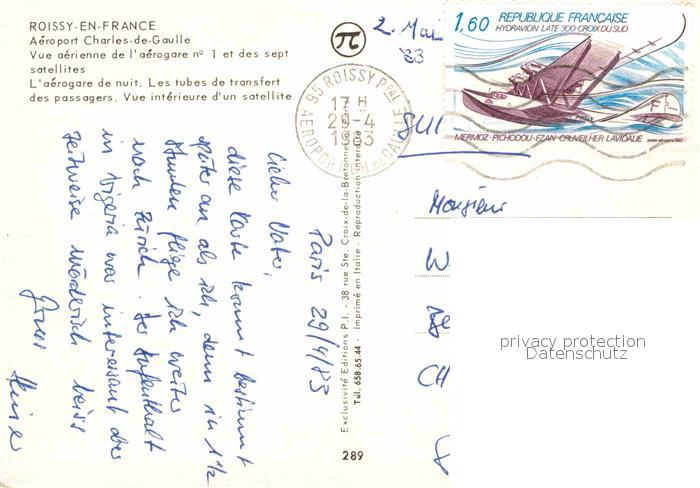 ROISSY-EN-FRANCE
Aéroport Charles-de-Gaulle
Vue aérienne de l'aérogare nº 1 et des sept
satellites
L'aérogare de nuit. Les tubes de transfert
des passagers. Vue intérieure d'un satellite
2. Mai
83
1,60 REPUBLIQUE FRANÇAISE
HYDRAVION·LATE 300·CROIX DU SUD
MERMOZ·PICHODOU·EZAN·CRUVEILHER·LAVIDALIE
95 ROISSY Pal
AEROPORT CH. de GAULLE
17 H
29-4
1983
Paris 29/4/83
Lieber Vater,
diese Karte kommt bestimmt
später an als ich, denn in 1½
Stunden fliege ich weiter
nach Zürich. Der Aufenthalt
in Nigeria war interessant aber
zeitweise mörderisch heiss
Gruss
Exclusivité Editions P.I. - 38 rue Ste. Croix-de-la-Bretonnerie
Tél. 658.65.44 - Imprimé en Italie - Reproduction interdite
289
SUI
Monsieur
W
CH
privacy protection
Datenschutz